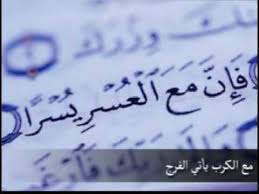 وِزْرَكَ
فَإِنَّ مَعَ الْعُسْرِ يُسْرًا
مع الكرب يأتي الفرج